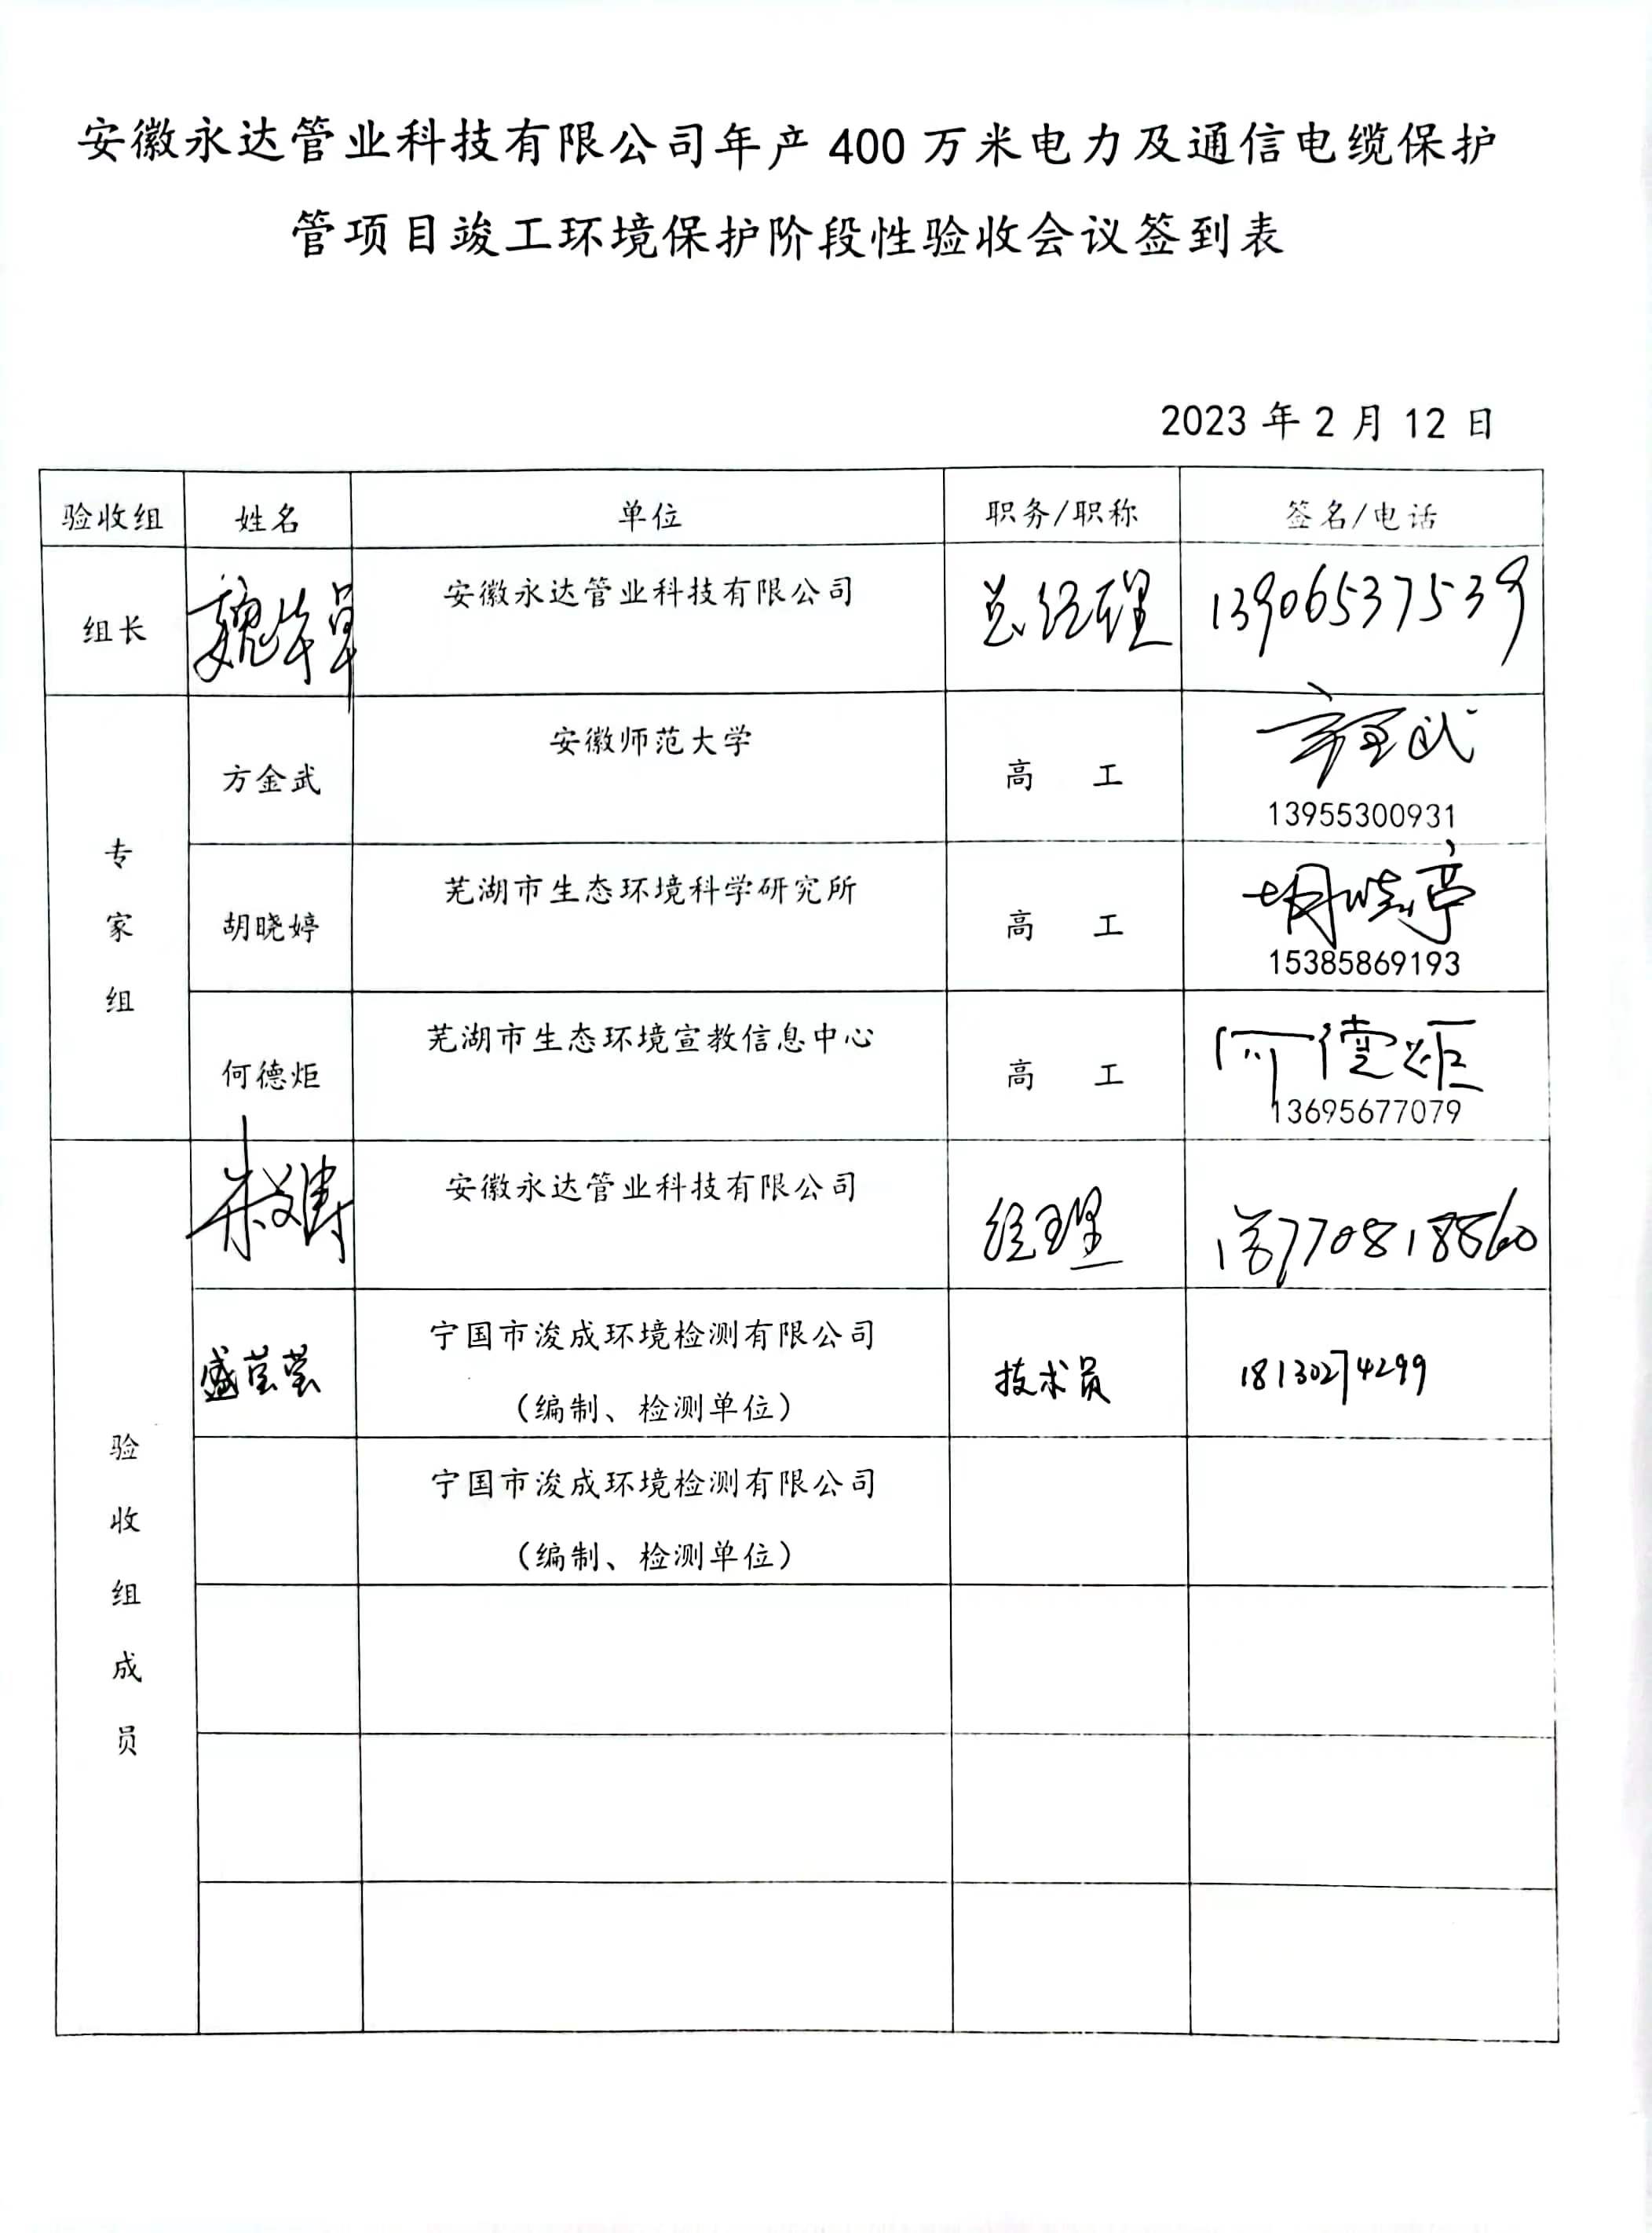 安徽永达管业科技有限公司年产 400 万米电力及通信电缆保护
管项目竣工环境保护阶段性验收会议签到表
2023 年 2 月 12 日
验收组 姓名 单位 职务/职称 签名/电话
组长 魏 安徽永达管业科技有限公司 总经理 13906537539
专家组
方金武 安徽师范大学 高 工 方金武
13955300931
胡晓婷 芜湖市生态环境科学研究所 高 工 胡晓婷
15385869193
何德炬 芜湖市生态环境宣教信息中心 高 工 何德炬
13695677079
验收组成员
朱文涛 安徽永达管业科技有限公司 经理
盛莹莹 宁国市浚成环境检测有限公司 技术员 18130274299
（编制、检测单位）
宁国市浚成环境检测有限公司
（编制、检测单位）